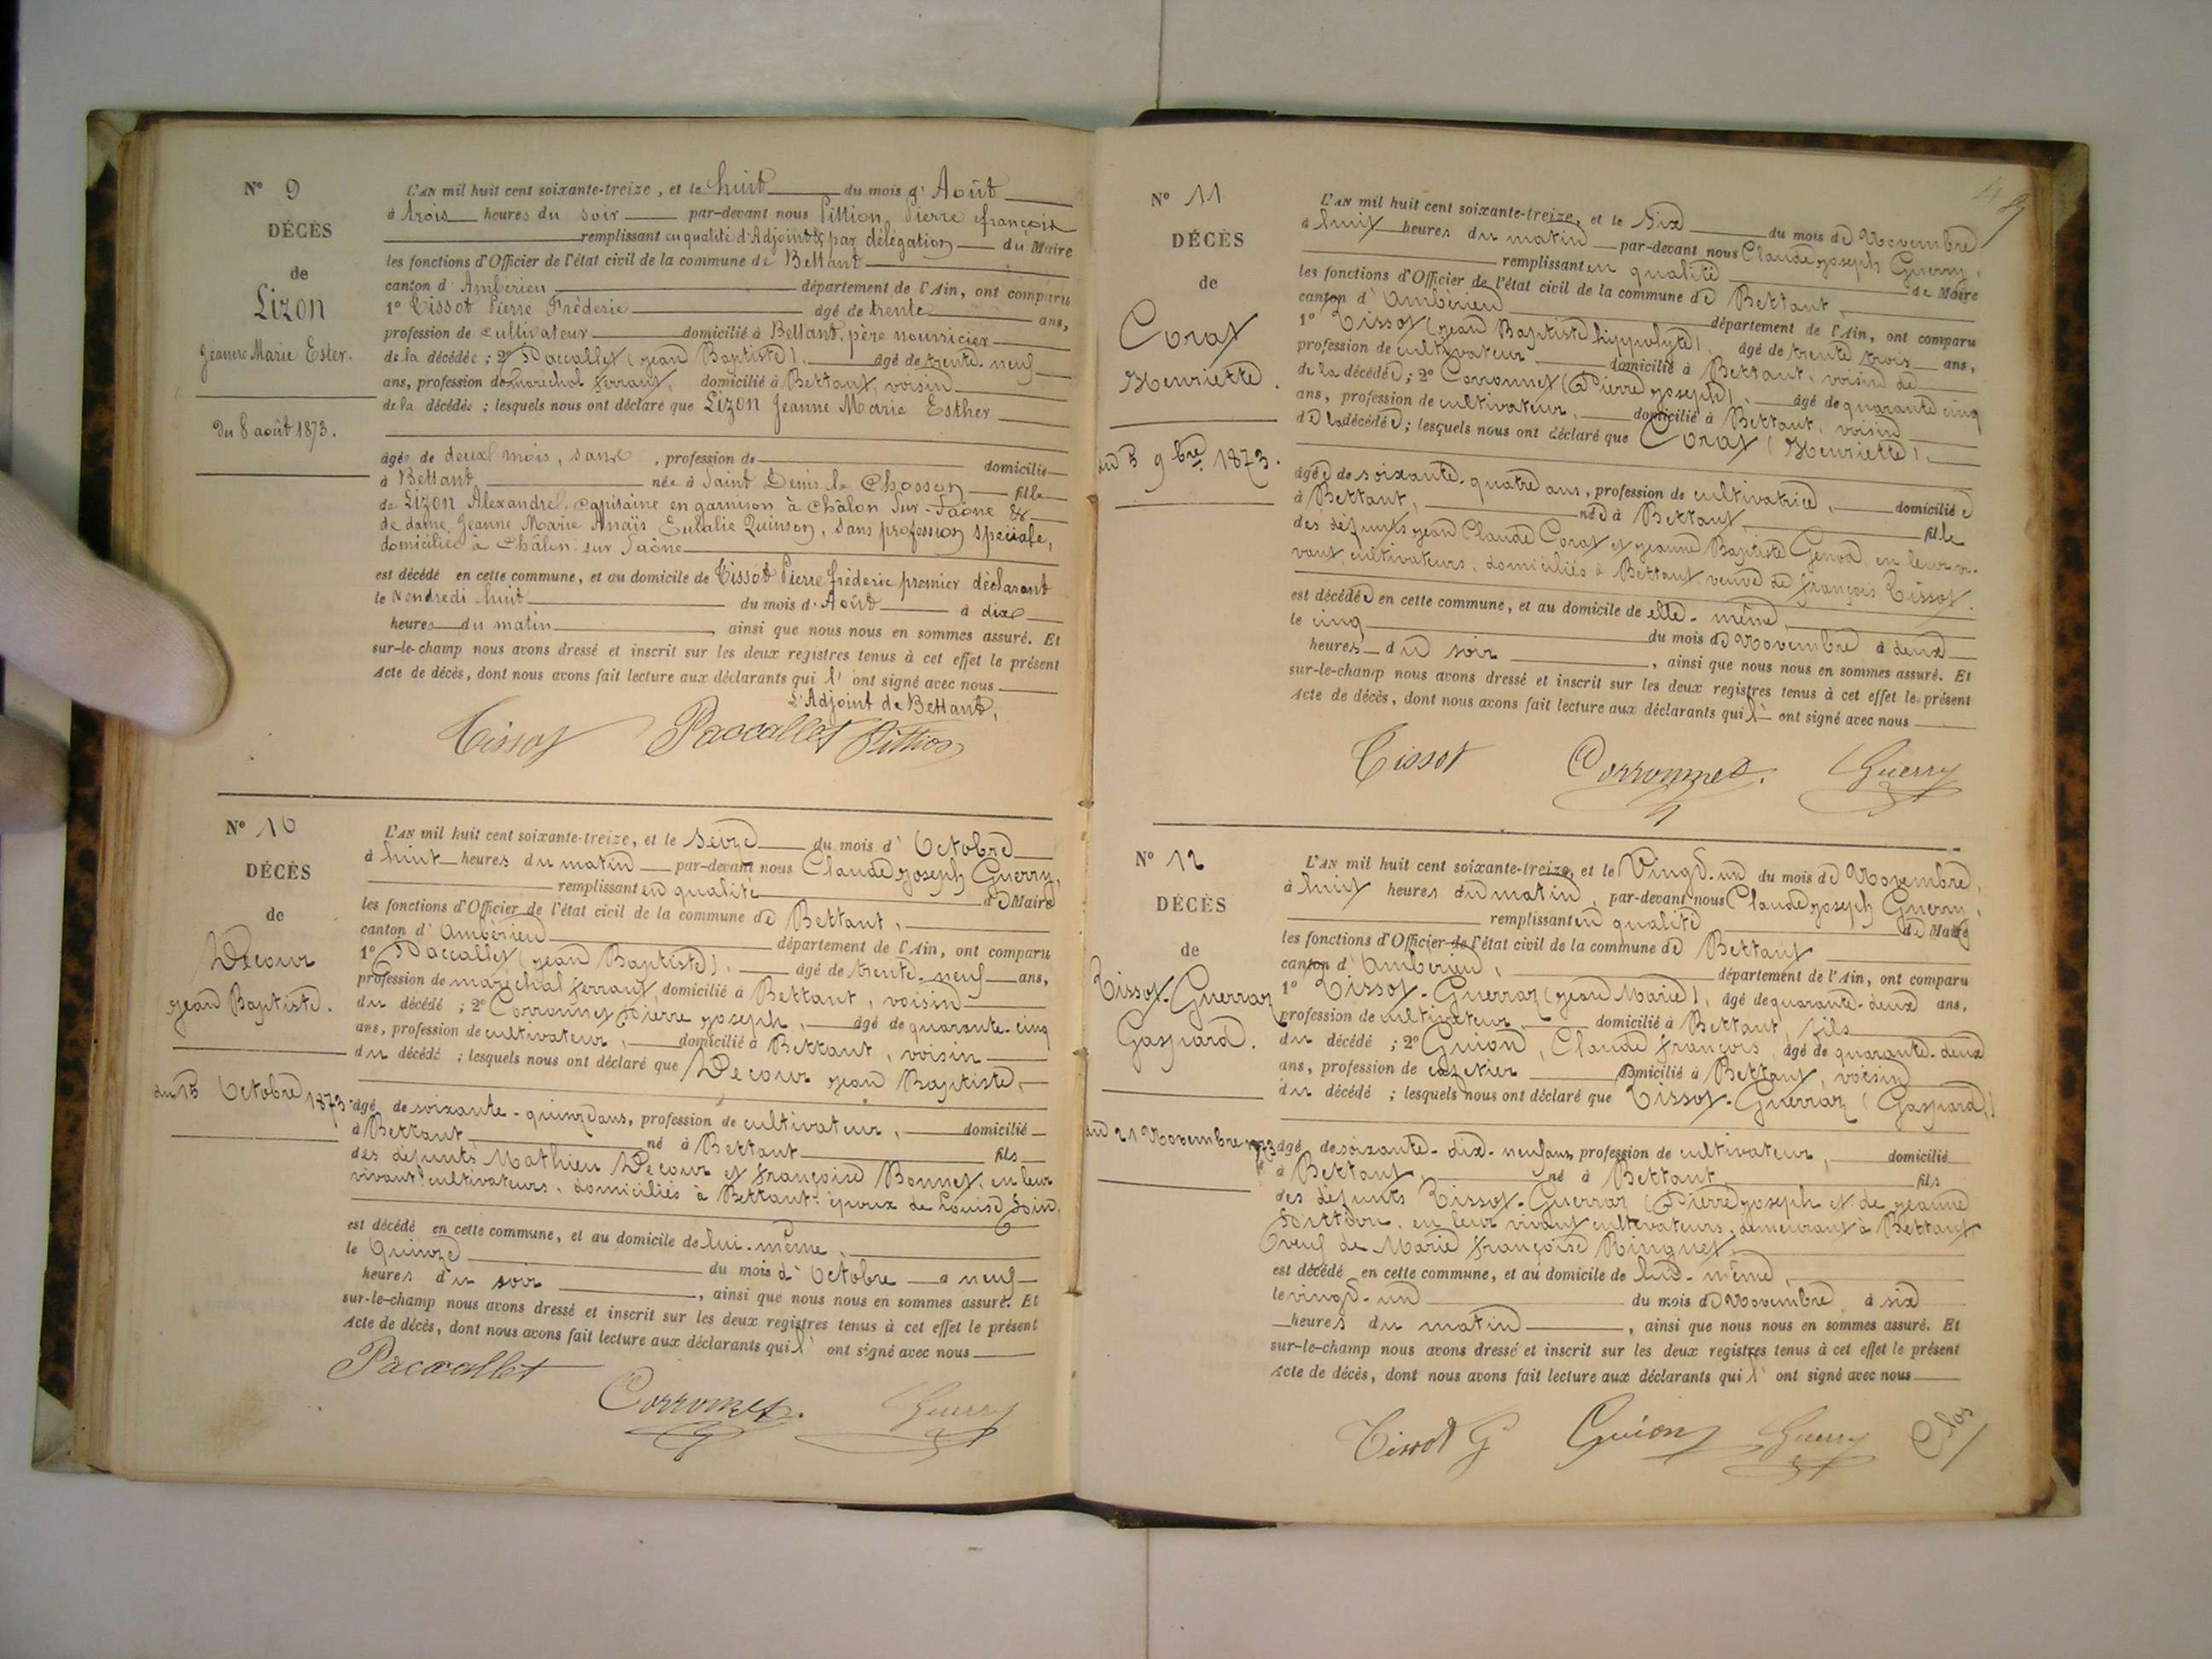 N° 9
DÉCÈS
de
Lizon
Jeanne Marie Ester.
Du 8 août 1873.
L'AN mil huit cent soixante-treize, et le huit du mois d' Août
à trois heures du soir par-devant nous Pittion Pierre françois
remplissant en qualité d'Adjoint & par délégation du Maire
les fonctions d'Officier de l'état civil de la commune de Bettant
canton d' Ambérieu département de l'Ain, ont comparu
1° Tissot Pierre Fréderic âgé de trente ans,
profession de cultivateur domicilié à Bettant, père nourricier
de la décédée ; 2° Paccallet (jean Baptiste), âgé de trente-neuf
ans, profession de maréchal ferrant, domicilié à Bettant, voisin
de la décédée ; lesquels nous ont déclaré que Lizon Jeanne Marie Esther
âgée de deux mois, sans , profession de domicilié
à Bettant née à Saint Denis le Chosson fille
de Lizon Alexandre, capitaine en garnison à Châlon Sur-Saône &
de dame Jeanne Marie Anaïs Eulalie Quinson, sans profession spéciale,
domiciliée à Châlon sur Saône
est décédé en cette commune, et au domicile de Tissot Pierre fréderic premier déclarant
le Vendredi huit du mois d' Août à dix
heures du matin , ainsi que nous nous en sommes assuré. Et
sur-le-champ nous avons dressé et inscrit sur les deux registres tenus à cet effet le présent
Acte de décès, dont nous avons fait lecture aux déclarants qui l' ont signé avec nous
L'Adjoint de Bettant,
Tissot Paccallet Pittion
N° 10
DÉCÈS
de
Decour
jean Baptiste.
du 15 Octobre 1873.
L'AN mil huit cent soixante-treize, et le Seize du mois d' Octobre
à huit heures du matin par-devant nous Claude joseph Guerry,
remplissant en qualité de Maire
les fonctions d'Officier de l'état civil de la commune de Bettant,
canton d' Ambérieu département de l'Ain, ont comparu
1° Paccallet (jean Baptiste), âgé de trente-neuf ans,
profession de maréchal ferrant, domicilié à Bettant, voisin
du décédé ; 2° Corronnet Pierre joseph, âgé de quarante-cinq
ans, profession de cultivateur, domicilié à Bettant, voisin
du décédé ; lesquels nous ont déclaré que Decour jean Baptiste,
âgé de soixante-quinze ans, profession de cultivateur, domicilié
à Bettant né à Bettant fils
des défunts Mathieu Decour et françoise Bonnet, en leur
vivant cultivateurs, domiciliés à Bettant. époux de Louise
est décédé en cette commune, et au domicile de lui-même,
le Quinze du mois d' Octobre à neuf
heures du soir , ainsi que nous nous en sommes assuré. Et
sur-le-champ nous avons dressé et inscrit sur les deux registres tenus à cet effet le présent
Acte de décès, dont nous avons fait lecture aux déclarants qui l' ont signé avec nous
Paccallet
Corronnet Guerry
48
N° 11
DÉCÈS
de
Corat
Henriette.
du 5 9bre 1873.
L'AN mil huit cent soixante-treize, et le Six du mois de Novembre
à huit heures du matin par-devant nous Claude joseph Guerry,
remplissant en qualité de Maire
les fonctions d'Officier de l'état civil de la commune de Bettant,
canton d' Ambérieu département de l'Ain, ont comparu
1° Tissot (jean Baptiste hippolyte), âgé de trente trois ans,
profession de cultivateur domicilié à Bettant, voisin de
de la décédée ; 2° Corronnet (Pierre joseph), âgé de quarante cinq
ans, profession de cultivateur, domicilié à Bettant, voisin
de la décédée ; lesquels nous ont déclaré que Corat (Henriette),
âgée de soixante-quatre ans, profession de cultivatrice, domiciliée
à Bettant, née à Bettant, fille
des défunts jean Claude Corat et jeanne Baptiste Genod, en leur vi-
vant cultivateurs, domiciliés à Bettant, veuve de françois Tissot.
est décédée en cette commune, et au domicile de elle-même,
le cinq du mois de Novembre à deux
heures du soir , ainsi que nous nous en sommes assuré. Et
sur-le-champ nous avons dressé et inscrit sur les deux registres tenus à cet effet le présent
Acte de décès, dont nous avons fait lecture aux déclarants qui l' ont signé avec nous
Tissot Corronnet. Guerry
N° 12
DÉCÈS
de
Tissot-Guerraz
Gaspard.
du 21 Novembre 1873
L'AN mil huit cent soixante-treize, et le Vingt-un du mois de Novembre,
à huit heures du matin, par-devant nous Claude joseph Guerry,
remplissant en qualité de Maire
les fonctions d'Officier de l'état civil de la commune de Bettant
canton d' Ambérieu, département de l'Ain, ont comparu
1° Tissot-Guerraz (jean Marie), âgé de quarante-deux ans,
profession de cultivateur domicilié à Bettant, fils
du décédé ; 2° Guion, Claude françois, âgé de quarante-deux
ans, profession de cafetier domicilié à Bettant, voisin
du décédé ; lesquels nous ont déclaré que Tissot-Guerraz (Gaspard),
âgé de soixante-dix-neuf ans, profession de cultivateur, domicilié
à Bettant, né à Bettant fils
des défunts Tissot-Guerraz (Pierre joseph et de jeanne
en leur vivant cultivateurs, demeurant à Bettant,
veuf de Marie françoise Ringuet,
est décédé en cette commune, et au domicile de lui-même,
le vingt-un du mois de Novembre à six
heures du matin , ainsi que nous nous en sommes assuré. Et
sur-le-champ nous avons dressé et inscrit sur les deux registres tenus à cet effet le présent
Acte de décès, dont nous avons fait lecture aux déclarants qui l' ont signé avec nous
Tissot G Guion Guerry Clos